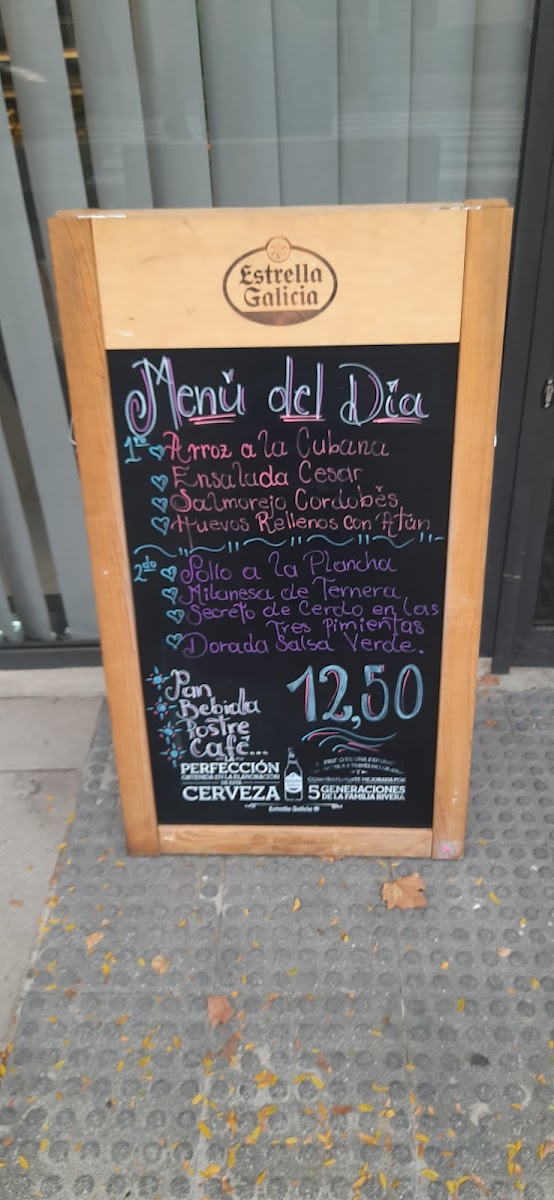 Estrella
Galicia
Menú del Día
1ro Arroz a la Cubana
Ensalada Cesar
Salmorejo Cordobés
Huevos Rellenos con Atún
2do Pollo a la Plancha
Milanesa de Ternera
Secreto de Cerdo en las
Tres Pimientas
Dorada Salsa Verde.
Pan
Bebida
Postre
Café...
12,50
LA
PERFECCIÓN
OBTENIDA EN LA ELABORACIÓN
DE ESTA
CERVEZA
5 GENERACIONES
DE LA FAMILIA RIVERA
Estrella Galicia